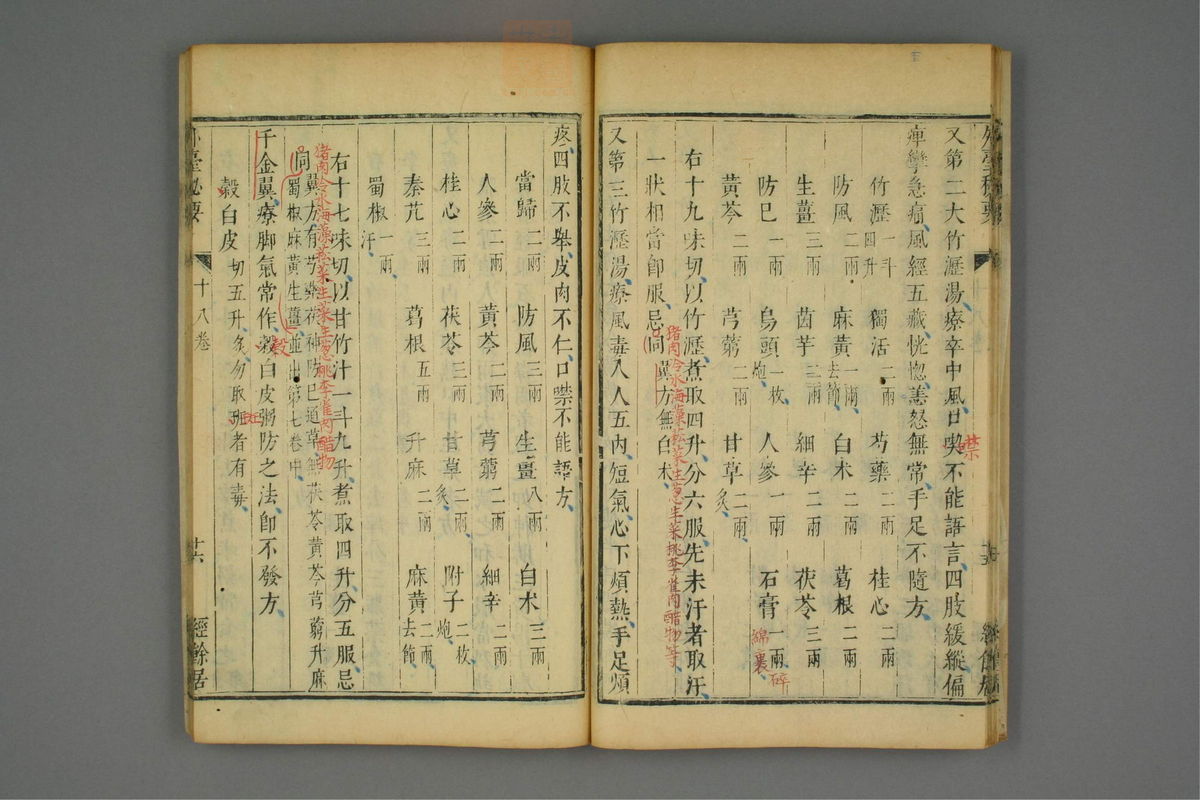 又第二大竹瀝湯療卒中風口喫不能語言四肢緩縱偏
噤
痺攣急痛風經五藏恍惚恚怒無常手足不隨方
竹瀝一斗四升 獨活二兩 芍藥二兩 桂心二兩
防風二兩 麻黃一兩去節 白术二兩 葛根二兩
生薑三兩 茵芋二兩 細辛二兩 茯苓三兩
防巳一兩 烏頭一枚炮 人參一兩 石膏一兩
碎綿裹
黃芩二兩 芎藭二兩 甘草二兩炙
右十九味切以竹瀝煮取四升分六服先未汗者取汗
猪肉冷水海藻菘菜生葱生菜桃李雀肉醋物等
一狀相當卽服忌同翼方無白术
又第三竹瀝湯療風毒入人五內短氣心下煩熱手足煩
外臺秘要 十八卷
疼四肢不舉皮肉不仁口噤不能語方
當歸二兩 防風三兩 生薑八兩 白术三兩
人參二兩 黃芩二兩 芎藭二兩 細辛二兩
桂心二兩 茯苓三兩 甘草二兩炙 附子二枚炮
秦艽三兩 葛根五兩 升麻二兩 麻黃二兩去節
蜀椒一兩汗
右十七味切以甘竹汁一斗九升煮取四升分五服忌
猪肉冷水海藻菘菜生菜生葱桃李雀肉醋物
同翼方有芍藥茯神防巳通草無茯苓黃芩芎藭升麻
蜀椒麻黃生薑並出第七卷中
千金翼療脚氣常作穀白皮粥防之法卽不發方
穀
穀白皮切五升勿取斑者有毒
外臺秘要 十八卷 十六 經餘居